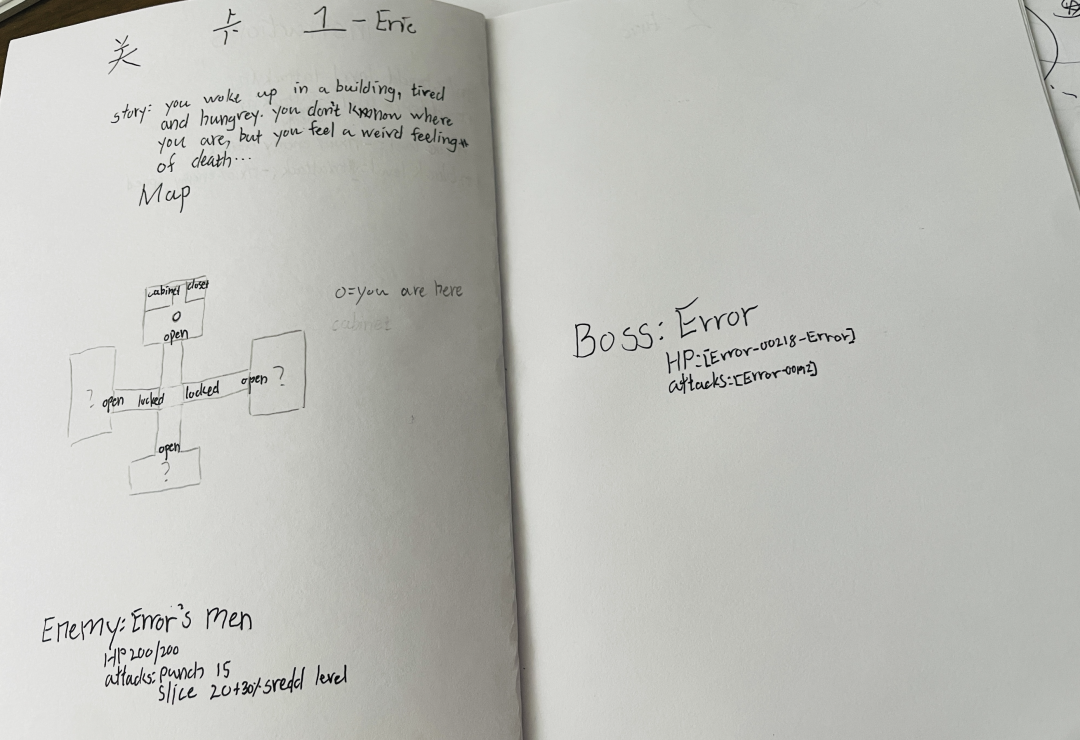 关 卡 1 - Eric
story: you woke up in a building, tired
and hungrey. you don't know where
you are, but you feel a weird feeling
of death...
Map
cabinet closet
O
open
O=you are here
cabinet
? open locked locked open ?
open
?
Enemy: Error's men
HP 200/200
attacks: punch 15
slice 20+30% level
Boss: Error
HP:[Error-00218-Error]
attacks:[Error-00m2]